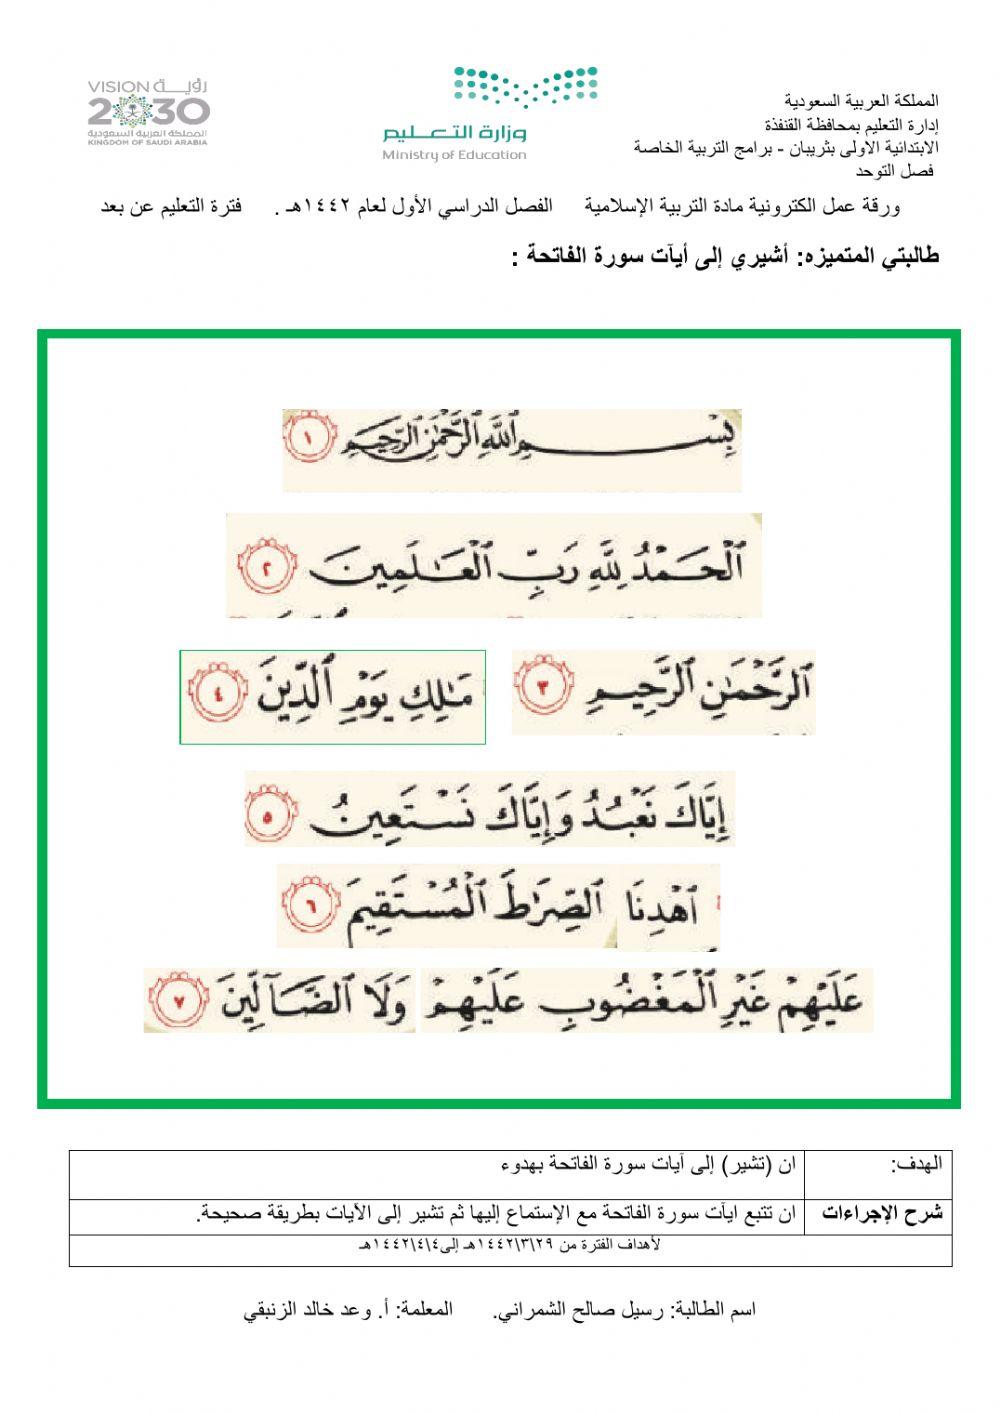 رؤيــــة VISION
2030
المملكة العربية السعودية
KINGDOM OF SAUDI ARABIA
وزارة التعـــليم
Ministry of Education
المملكة العربية السعودية
إدارة التعليم بمحافظة القنفذة
الابتدائية الاولى بثريبان - برامج التربية الخاصة
فصل التوحد
ورقة عمل الكترونية مادة التربية الإسلامية الفصل الدراسي الأول لعام ١٤٤٢هـ . فترة التعليم عن بعد
طالبتي المتميزه: أشيري إلى أيآت سورة الفاتحة :
بِسْمِ ٱللَّهِ ٱلرَّحْمَٰنِ ٱلرَّحِيمِ ١
ٱلْحَمْدُ لِلَّهِ رَبِّ ٱلْعَٰلَمِينَ ٢
ٱلرَّحْمَٰنِ ٱلرَّحِيمِ ٣ مَٰلِكِ يَوْمِ ٱلدِّينِ ٤
إِيَّاكَ نَعْبُدُ وَإِيَّاكَ نَسْتَعِينُ ٥
ٱهْدِنَا ٱلصِّرَٰطَ ٱلْمُسْتَقِيمَ ٦
عَلَيْهِمْ غَيْرِ ٱلْمَغْضُوبِ عَلَيْهِمْ وَلَا ٱلضَّآلِّينَ ٧
الهدف: ان (تشير) إلى آيات سورة الفاتحة بهدوء
شرح الإجراءات ان تتبع ايآت سورة الفاتحة مع الإستماع إليها ثم تشير إلى الآيات بطريقة صحيحة.
لأهداف الفترة من ٢٩\٣\١٤٤٢هـ إلى٤\٤\١٤٤٢هـ
اسم الطالبة: رسيل صالح الشمراني. المعلمة: أ. وعد خالد الزنبقي